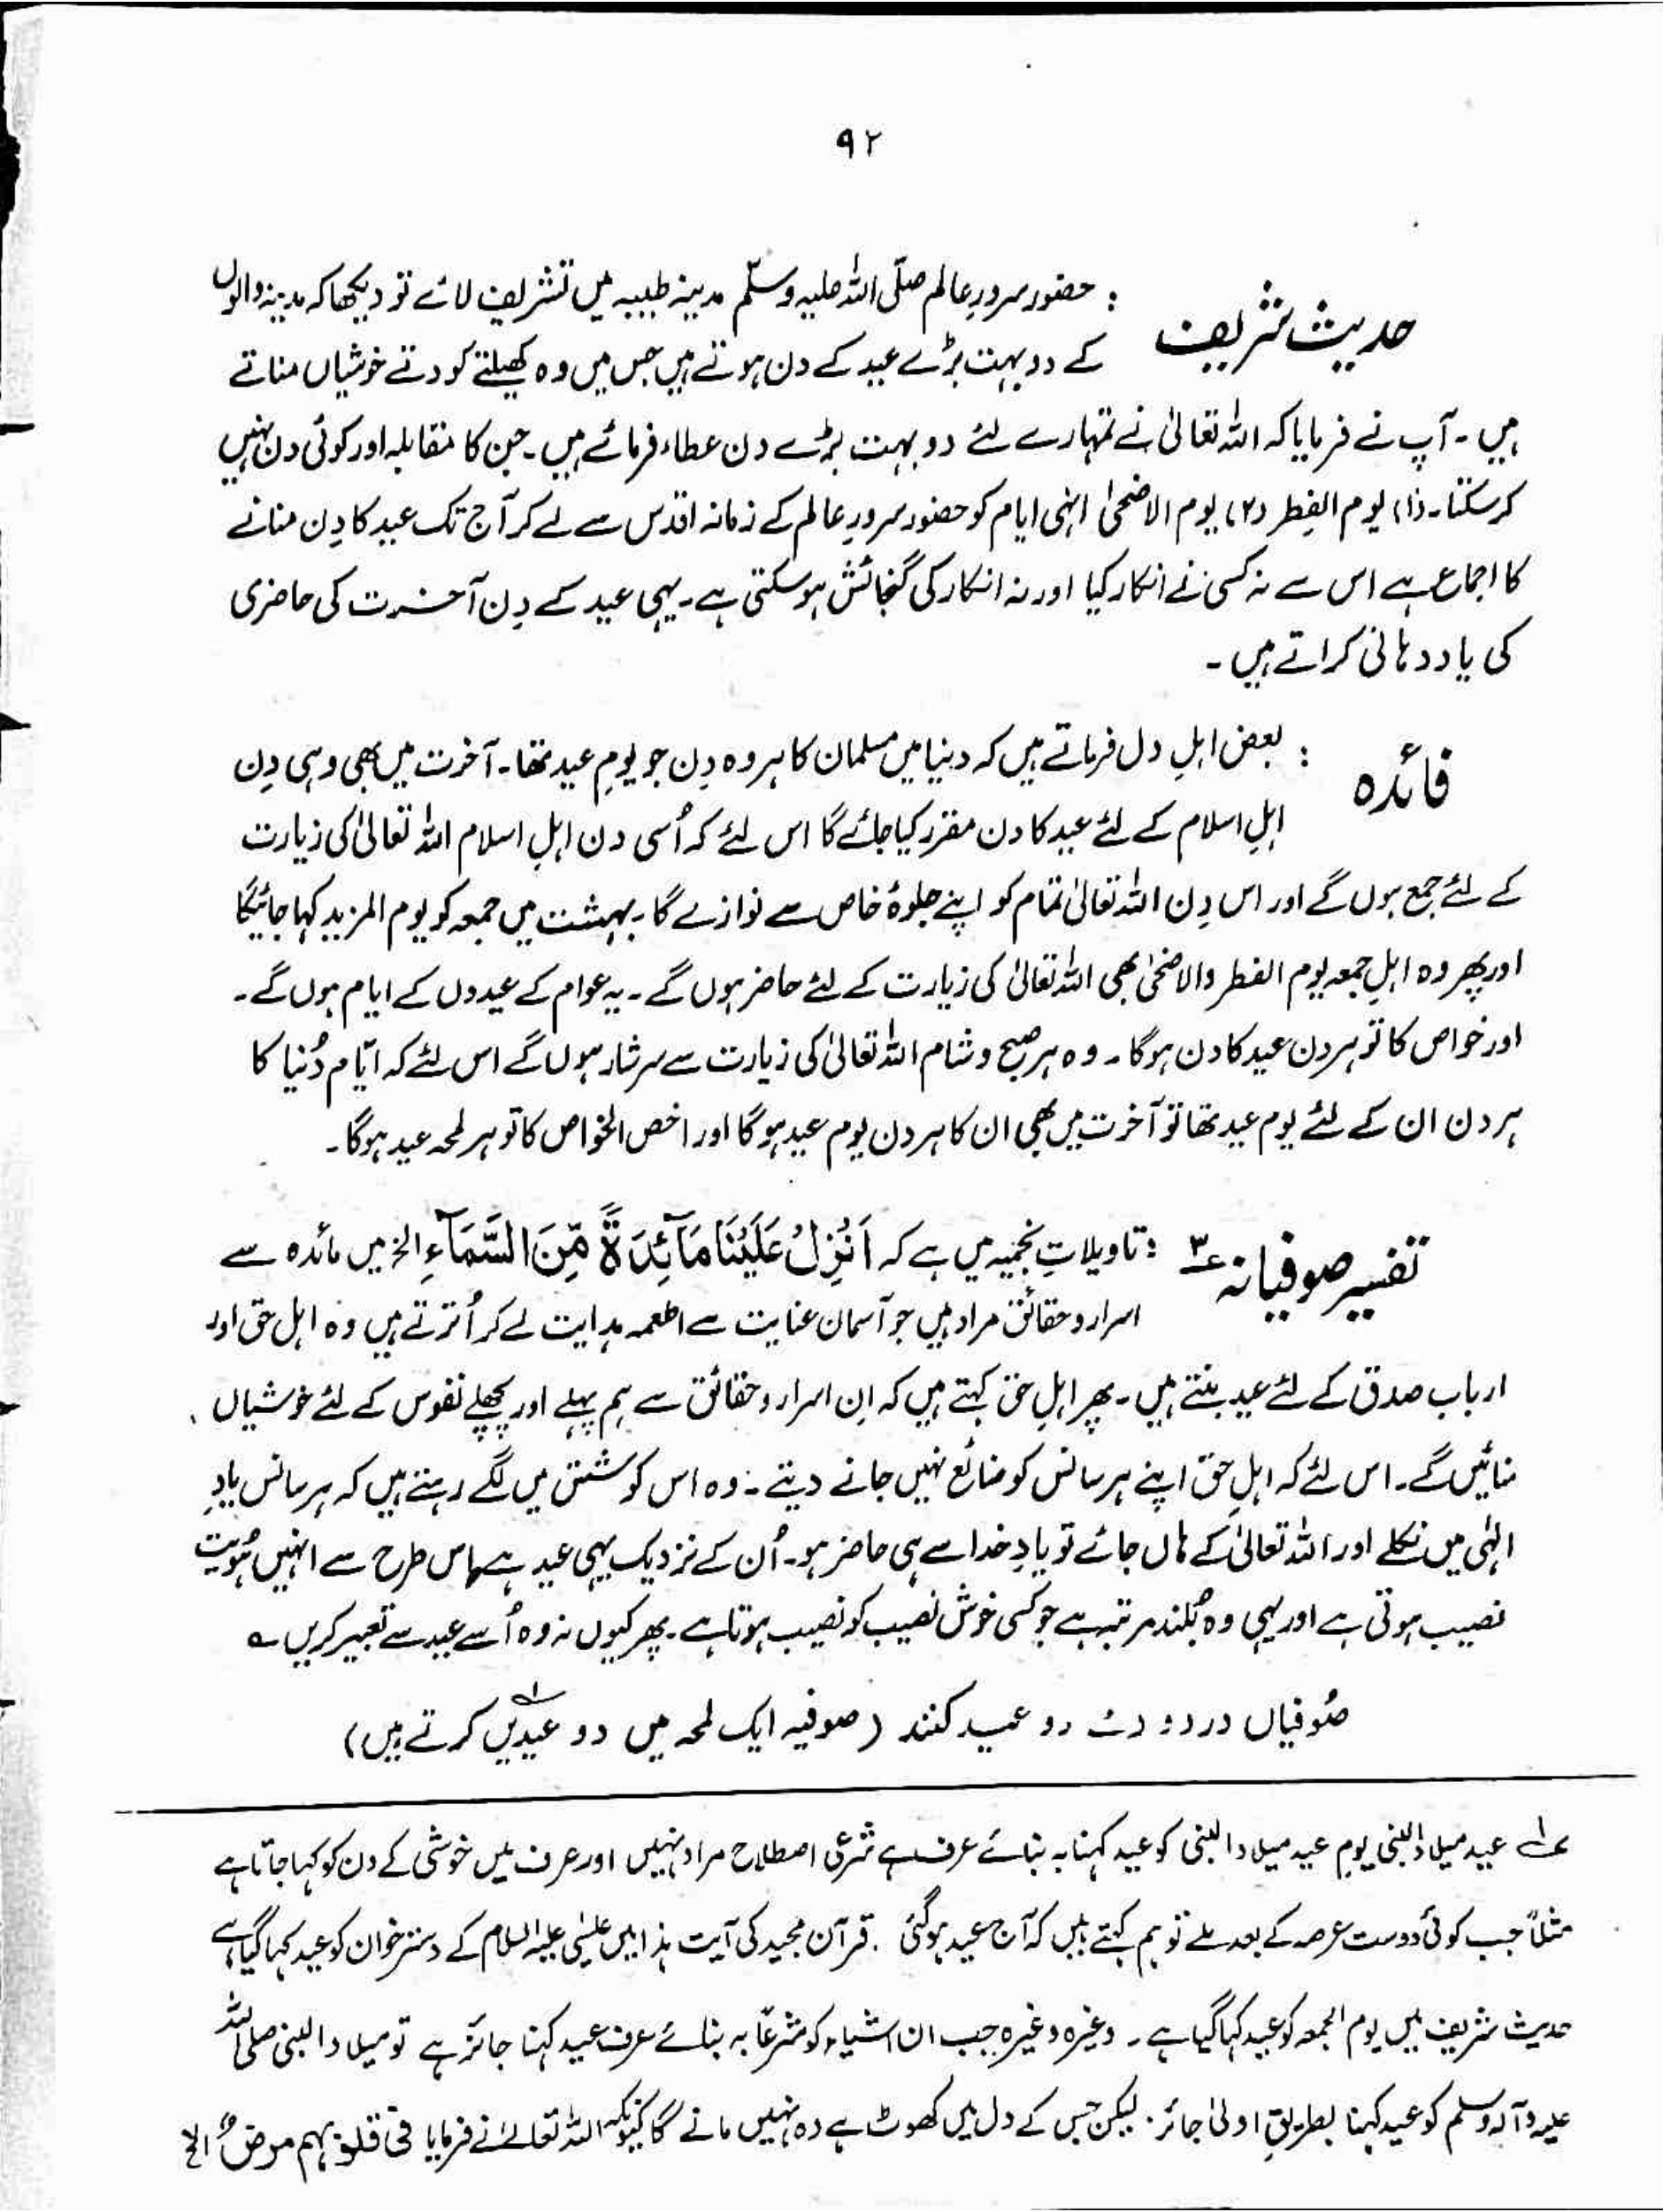 ۹۲
حدیث شریف : حضور سرورِ عالم صلّی اللہ علیہ وسلّم مدینہ طیبہ میں تشریف لائے تو دیکھا کہ مدینہ والوں
کے دو بہت بڑے عید کے دن ہوتے ہیں جس میں وہ کھیلتے کودتے خوشیاں مناتے
ہیں ۔ آپ نے فرمایا کہ اللہ تعالیٰ نے تمہارے لئے دو بہت بڑے دن عطاء فرمائے ہیں ۔ جن کا مقابلہ اور کوئی دن نہیں
کرسکتا ۔ (۱) یوم الفِطر (۲) یوم الاضحیٰ انہی ایام کو حضور سرورِ عالم کے زمانہ اقدس سے لے کر آج تک عید کا دِن منانے
کا اجماع ہے اس سے نہ کسی نے انکار کیا اور نہ انکار کی گنجائش ہوسکتی ہے ۔ یہی عید کے دِن آخرت کی حاضری
کی یاد دہانی کراتے ہیں ۔
فائدہ : بعض اہلِ دل فرماتے ہیں کہ دنیا میں مسلمان کا ہر وہ دِن جو یومِ عید تھا ۔ آخرت میں بھی وہی دِن
اہلِ اسلام کے لئے عید کا دن مقرر کیا جائے گا اس لئے کہ اُسی دن اہلِ اسلام اللہ تعالیٰ کی زیارت
کے لئے جمع ہوں گے اور اس دِن اللہ تعالیٰ تمام کو اپنے جلوۂ خاص سے نوازے گا ۔ بہشت میں جمعہ کو یوم المزید کہا جائیگا
اور پھر وہ اہلِ جمعہ یوم الفطر والاضحیٰ بھی اللہ تعالیٰ کی زیارت کے لئے حاضر ہوں گے ۔ یہ عوام کے عیدوں کے ایام ہوں گے ۔
اور خواص کا تو ہر دن عید کا دن ہوگا ۔ وہ ہر صبح و شام اللہ تعالیٰ کی زیارت سے سرشار ہوں گے اس لئے کہ ایّام دُنیا کا
ہر دن ان کے لئے یوم عید تھا تو آخرت میں بھی ان کا ہر دن یوم عید ہوگا اور اخص الخواص کا تو ہر لمحہ عید ہوگا ۔
تفسیر صوفیانہ ۳؎ : تاویلاتِ نجمیہ میں ہے کہ اَنْزِلْ عَلَیْنَا مَآئِدَۃً مِّنَ السَّمَآءِ الخ میں مائدہ سے
اسرار و حقائق مراد ہیں جو آسمان عنایت سے اطعمہ ہدایت لے کر اُترتے ہیں وہ اہل حق اور
ارباب صدق کے لئے عید بنتے ہیں ۔ پھر اہلِ حق کہتے ہیں کہ اِن اسرار و حقائق سے ہم پہلے اور پچھلے نفوس کے لئے خوشیاں
منائیں گے ۔ اس لئے کہ اہلِ حق اپنے ہر سانس کو ضائع نہیں جانے دیتے ۔ وہ اس کوشش میں لگے رہتے ہیں کہ ہر سانس یادِ
الٰہی میں نکلے اور اللہ تعالیٰ کے ہاں جائے تو یادِ خدا سے ہی حاضر ہو ۔ اُن کے نزدیک یہی عید ہے اس طرح سے انہیں ہُویت
نصیب ہوتی ہے اور یہی وہ بُلند مرتبہ ہے جو کسی خوش نصیب کو نصیب ہوتا ہے ۔ پھر کیوں نہ وہ اُسے عید سے تعبیر کریں ؎
صُوفیاں در دو دو عید کنند ( صوفیہ ایک لمحہ میں دو عیدیں ۱؎ کرتے ہیں )
۱؎ عید میلاد النبی یوم عید میلاد النبی کو عید کہنا بہ بنائے عرف ہے شرعی اصطلاح مراد نہیں اور عرف میں خوشی کے دن کو کہا جاتا ہے
مثلاً جب کوئی دوست عرصہ کے بعد ملے تو ہم کہتے ہیں کہ آج عید ہوگئی . قرآن مجید کی آیت ہذا میں عیسٰی علیہ السلام کے دسترخوان کو عید کہا گیا ہے
حدیث شریف میں یوم الجمعہ کو عید کہا گیا ہے ۔ وغیرہ وغیرہ جب ان اشیاء کو شرعًا بہ بنائے عرف عید کہنا جائز ہے تو میلاد النبی صلی اللہ
علیہ وآلہ وسلم کو عید کہنا بطریقِ اولیٰ جائز . لیکن جس کے دل میں کھوٹ ہے وہ نہیں مانے گا کیونکہ اللہ تعالےٰ نے فرمایا فی قلوبہم مرضٌ الخ